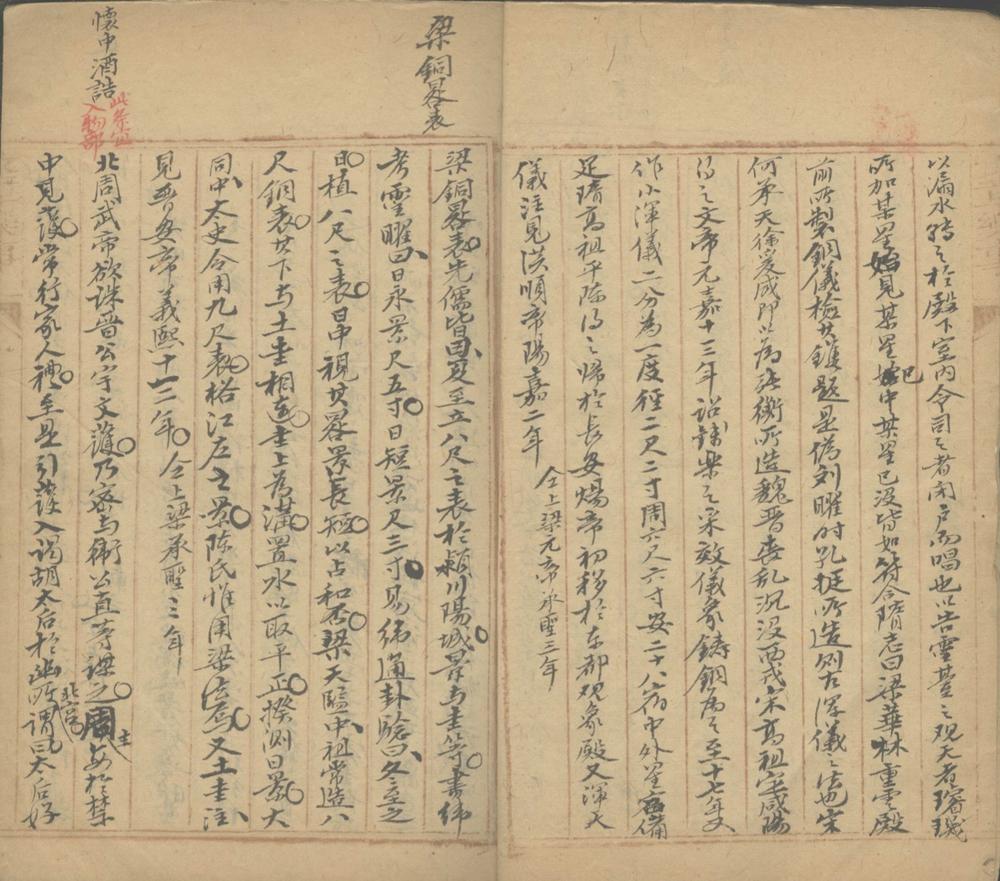 以漏水轉之於殿下室內令司之者閉户而唱也以告靈臺之观天者璿璣
所加某星始見某星已中某星已没皆如符合隋志曰梁華林重雲殿
前所製銅儀檢其鐫題是偽刘曜时孔挺所造則古渾儀之法也宋
何承天徐爰咸即以為張衡所造魏晋丧乱沉没西戎宋高祖定咸陽
得之文帝元嘉十三年詔錢樂之采效儀象鋳銅為之至十七年又
作小渾儀二分為一度径二尺二寸周六尺六寸安二十八宿中外星官備
足隋高祖平陈得之帰於長安煬帝初移於东都观象殿又渾天
儀注見漢順帝陽嘉二年
仝上梁元帝承聖三年
梁銅晷表
梁銅晷表先儒皆曰夏至立八尺之表於潁川陽城景与圭等書緯
考靈曜曰日永景尺五寸日短景尺三寸易緯通卦驗曰冬至之
日植八尺之表日中視其晷景長短以占和否梁天監中祖常造八
尺銅表其下与土圭相連圭上為溝置水以取平正揆測日景大
同中太史令用九尺表格江左之景陈氏惟用梁法焉又土圭注
見晋安帝義熙十二年仝上梁承聖三年
懷中酒誥
此条宜
入物部
北周武帝欲誅晋公宇文護乃密与衞公直等謀之周主每於禁
中見護常行家人禮至是引護入謁胡太后於幽所謂曰太后好
北宫